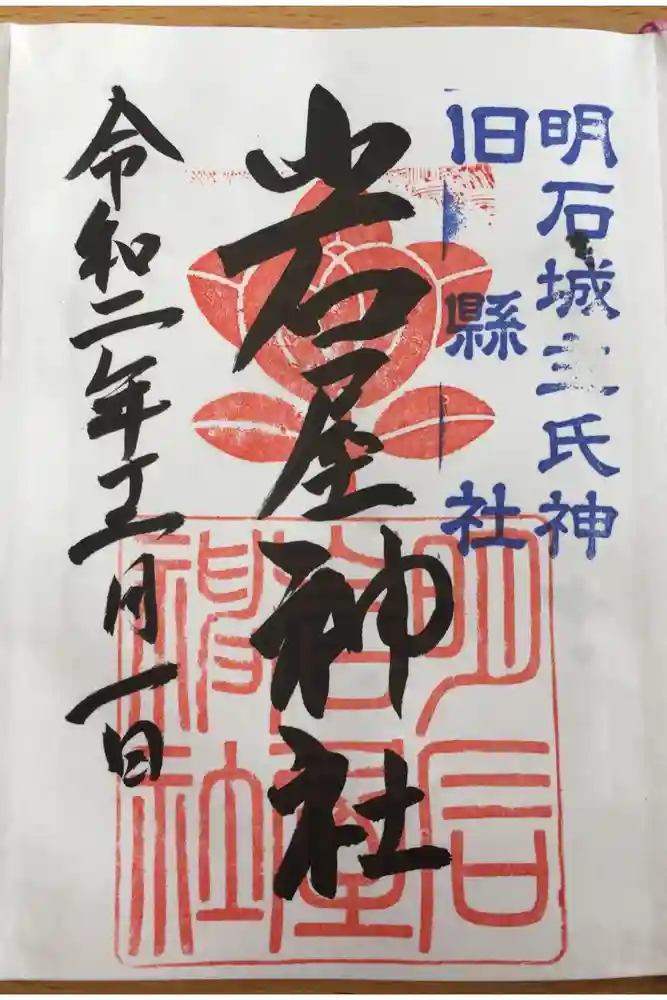 明石城主氏神
旧縣社
岩屋神社
令和二年五月一日
明石
岩屋
神社